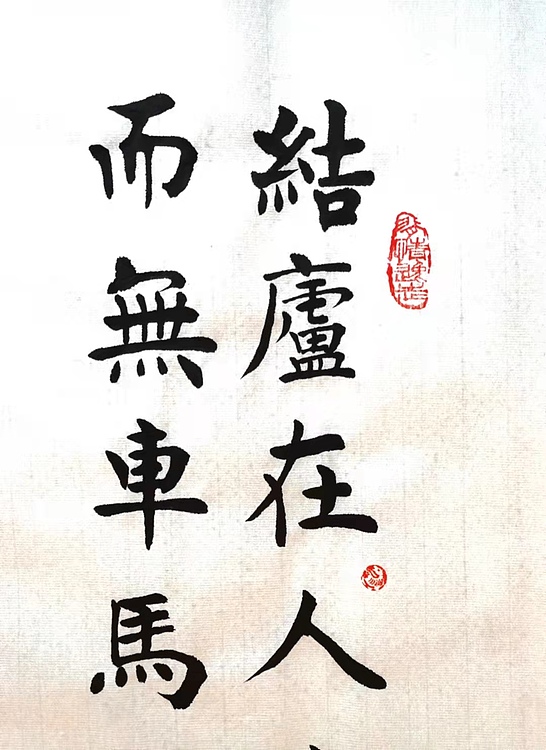 結廬在人
而無車馬